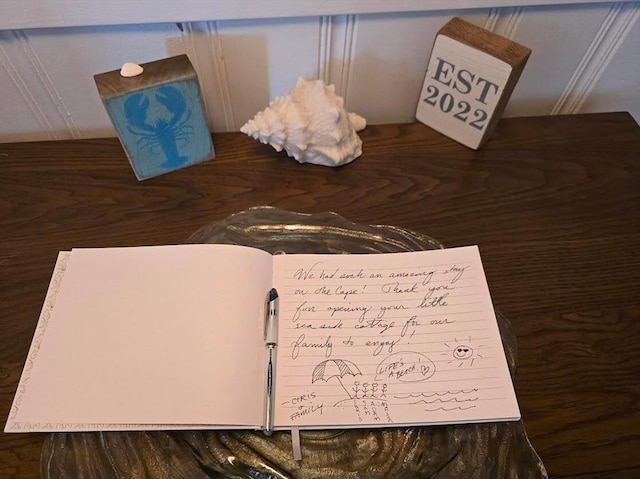 EST
2022
We had such an amazing stay
on the Cape! Thank you
for opening your little
sea side cottage for our
family to enjoy!
LIFE'S
A BEACH!
- CHRIS
+
FAMILY